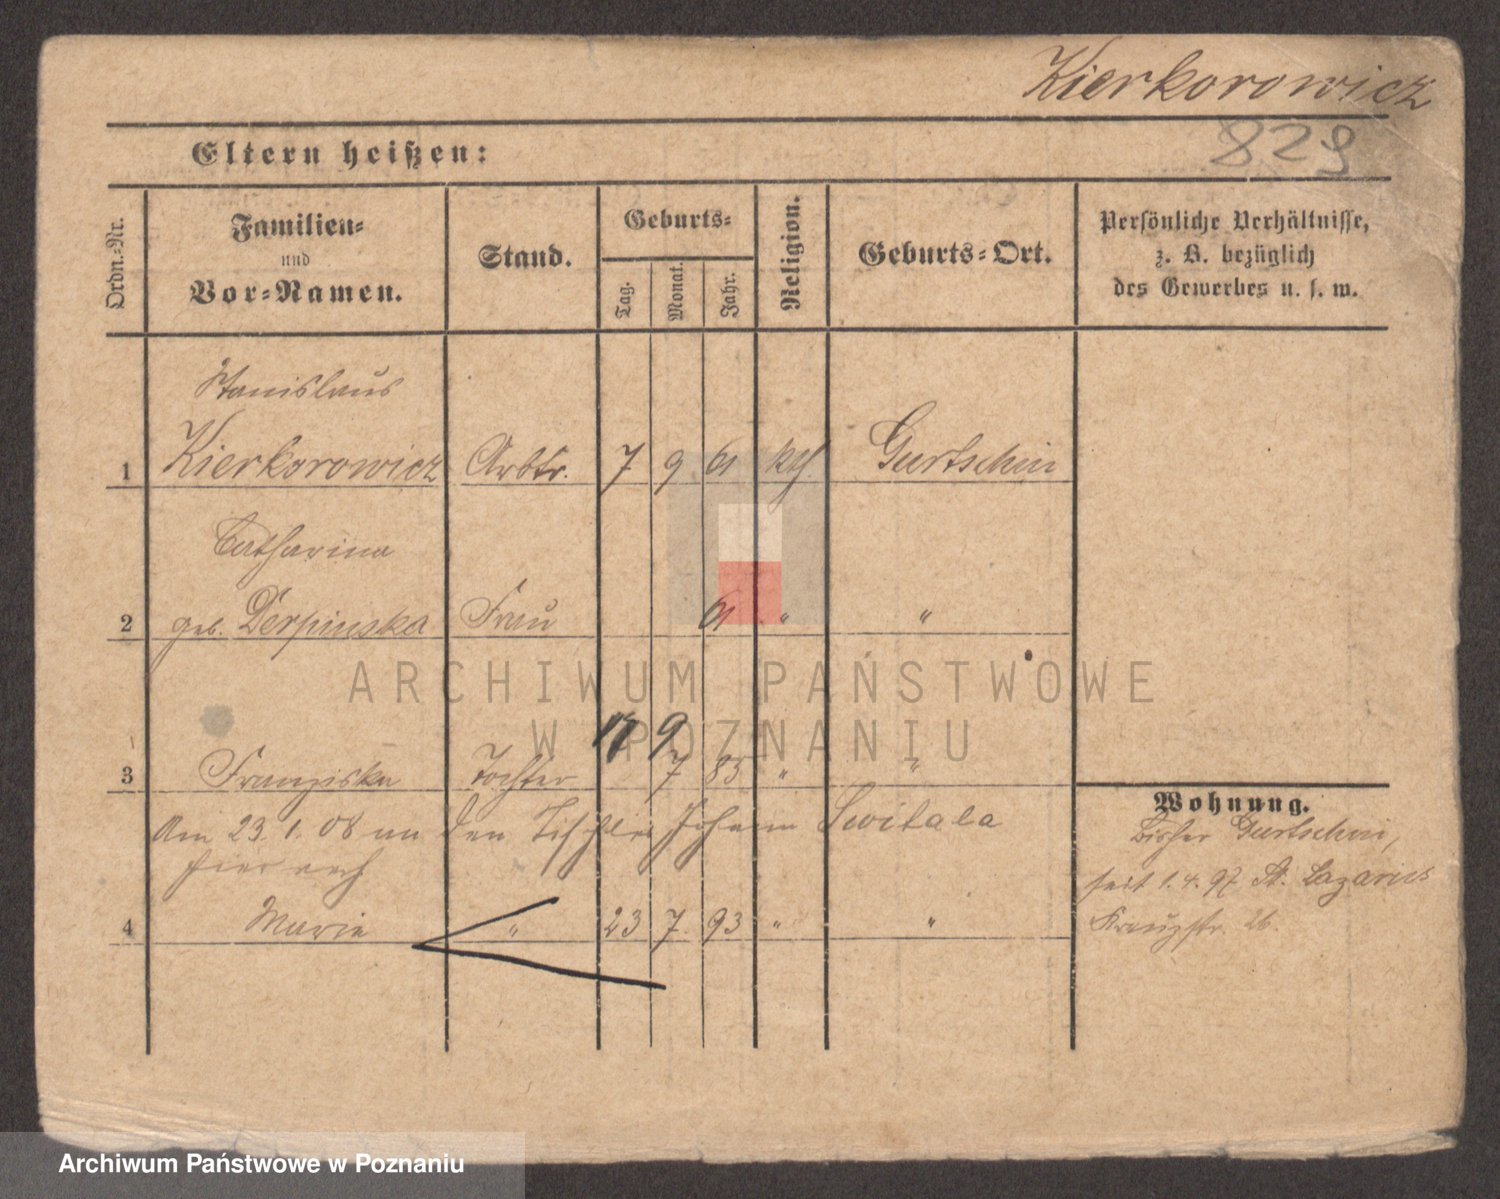 Kierkorowicz
829
Eltern heißen:
Ordn.-Nr.
Familien-
und
Vor-Namen.
Stand.
Geburts-
Tag.
Monat.
Jahr.
Religion.
Geburts-Ort.
Persönliche Verhältnisse,
z. B. bezüglich
des Gewerbes u. s. w.
Stanislaus
1 Kierkorowicz Arbtr. 7 9 61 kth. Gurtschin
Catharina
2 geb. Derpinska Frau 61 " "
17 9
3 Franziska Tochter 7 85 " "
Am 23.1.08 an den Tischler Johann Switala
hier verh
4 Marie " 23 7. 93 " "
Wohnung.
Bisher Gurtschin,
seit 1.4.97 St. Lazarus
Kreuzstr. 26.
ARCHIWUM PAŃSTWOWE
W POZNANIU
Archiwum Państwowe w Poznaniu